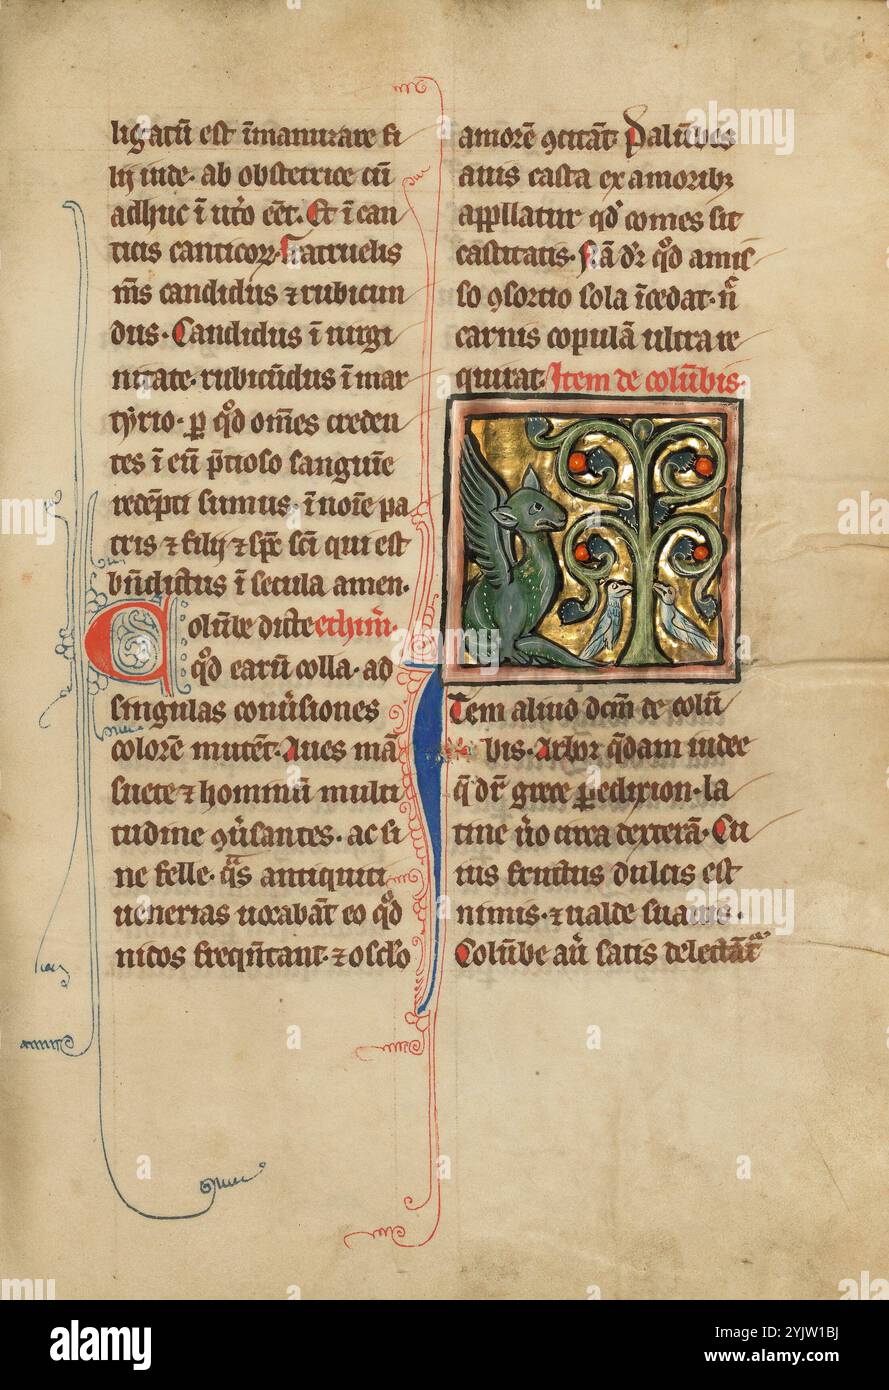 ligatū est ī manu zare fi
lij iude. ab obstetrice cū
adhuc ī uto eēt. Et ī can
ticis canticoꝝ. Fratruelis
m̄s candidus ⁊ rubicun
dus. Candidus ī uirgi
nitate. rubicūdus ī mar
tyrio. ꝑ qd̓ om̄es creden
tes ī eū p̄tioso sanguīe
redēpti sumus. ī noīe pa
tris ⁊ filij ⁊ sp̄c sc̄i qui est
bn̄dictus ī secula amen.
Colūbe dicte ethim̄.
qd̓ earū colla. ad
singulas conūsiones
colorē mutēt. Aues mā
suete ⁊ hominū multi
tudine ꝯūsantes. ac si
ne felle. q̄s antiquiti
uenerias uocabāt eo qd̓
nidos freqn̄tant. ⁊ osclo
amorē ꝯcitāt. Palūbes
auis casta ex amoribꝫ
appllatur qd̓ comes sit
castitatis. Nā dr̄ qd̓ amis
so ꝯsortio sola īcedat. n̄
carnis copulā ultra re
quirat. Item de colūbis.
Item aliud dcm̄ de colū
bis. Arbor qdam indee
q̄ dr̄ grece peꝛedixion. la
tine ūo circa dexterā. Cu
ius fructus dulcis est
nimis. ⁊ ualde suauis.
Colūbe aū satis delectātᷣ
alamy
www.alamy.com
Image ID: 2YJW1BJ